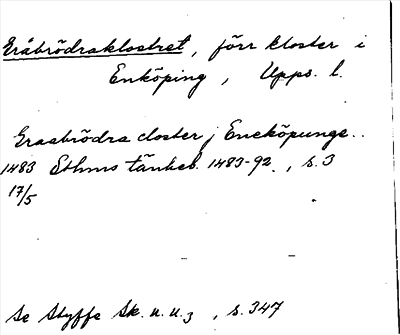 Gråbrödraklostret, förr kloster i
Enköping, Upps. l.
Graabrödra closter j Eneköpunge..
1483 Sthms tänkeb. 1483-92, s. 3
17/5
Se Styffe Sk. u. u.3, s. 347